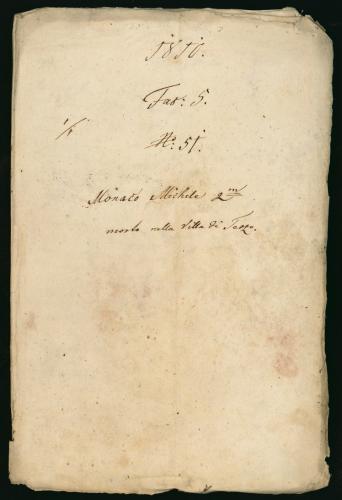 1810.
Fas: 5.
N.º 51.
Monaco Michele qm
morto nella Villa di